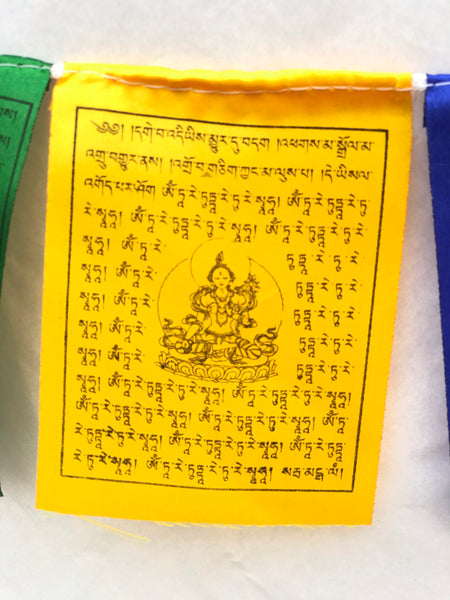 ༄༅། །དགེ་བ་འདི་ཡིས་མྱུར་དུ་བདག །འཕགས་མ་སྒྲོལ་མ་
འགྲུ་བགྱུར་ནས། །འགྲོ་བ་གཅིག་ཀྱང་མ་ལུས་པ། །དེ་ཡིས་ལ་
འགོད་པར་ཤོག ཨོཾ་ཏཱ་རེ་ཏུཏྟཱ་རེ་ཏུ་རེ་སྭཱཧཱ། ཨོཾ་ཏཱ་རེ་ཏུཏྟཱ་རེ་ཏུ་
རེ་སྭཱཧཱ། ཨོཾ་ཏཱ་རེ་ཏུཏྟཱ་རེ་ཏུ་རེ་སྭཱཧཱ། ཨོཾ་ཏཱ་རེ་ཏུཏྟཱ་རེ་ཏུ་རེ་
སྭཱཧཱ། ཨོཾ་ཏཱ་རེ་ ཏུཏྟཱ་རེ་ཏུ་རེ་
སྭཱཧཱ། ཨོཾ་ཏཱ་རེ་ ཏུཏྟཱ་རེ་ཏུ་རེ་
སྭཱཧཱ། ཨོཾ་ཏཱ་རེ་ ཏུཏྟཱ་རེ་ཏུ་རེ་
སྭཱཧཱ། ཨོཾ་ཏཱ་རེ་ ཏུཏྟཱ་རེ་ཏུ་རེ་
སྭཱཧཱ། ཨོཾ་ཏཱ་རེ་ ཏུཏྟཱ་རེ་ཏུ་རེ་
སྭཱཧཱ། ཨོཾ་ཏཱ་རེ་ཏུཏྟཱ་རེ་ཏུ་རེ་སྭཱཧཱ། ཨོཾ་ཏཱ་རེ་ཏུཏྟཱ་རེ་ཏུ་རེ་སྭཱཧཱ།
ཨོཾ་ཏཱ་རེ་ཏུཏྟཱ་རེ་ཏུ་རེ་སྭཱཧཱ། ཨོཾ་ཏཱ་རེ་ཏུཏྟཱ་རེ་ཏུ་རེ་སྭཱཧཱ། ཨོཾ་ཏཱ་
རེ་ཏུཏྟཱ་རེ་ཏུ་རེ་སྭཱཧཱ། ཨོཾ་ཏཱ་རེ་ཏུཏྟཱ་རེ་ཏུ་རེ་སྭཱཧཱ། ཨོཾ་ཏཱ་རེ་ཏུཏྟཱ་
རེ་ཏུ་རེ་སྭཱཧཱ། ཨོཾ་ཏཱ་རེ་ཏུཏྟཱ་རེ་ཏུ་རེ་སྭཱཧཱ། སརྦ་མངྒ་ལཾ།